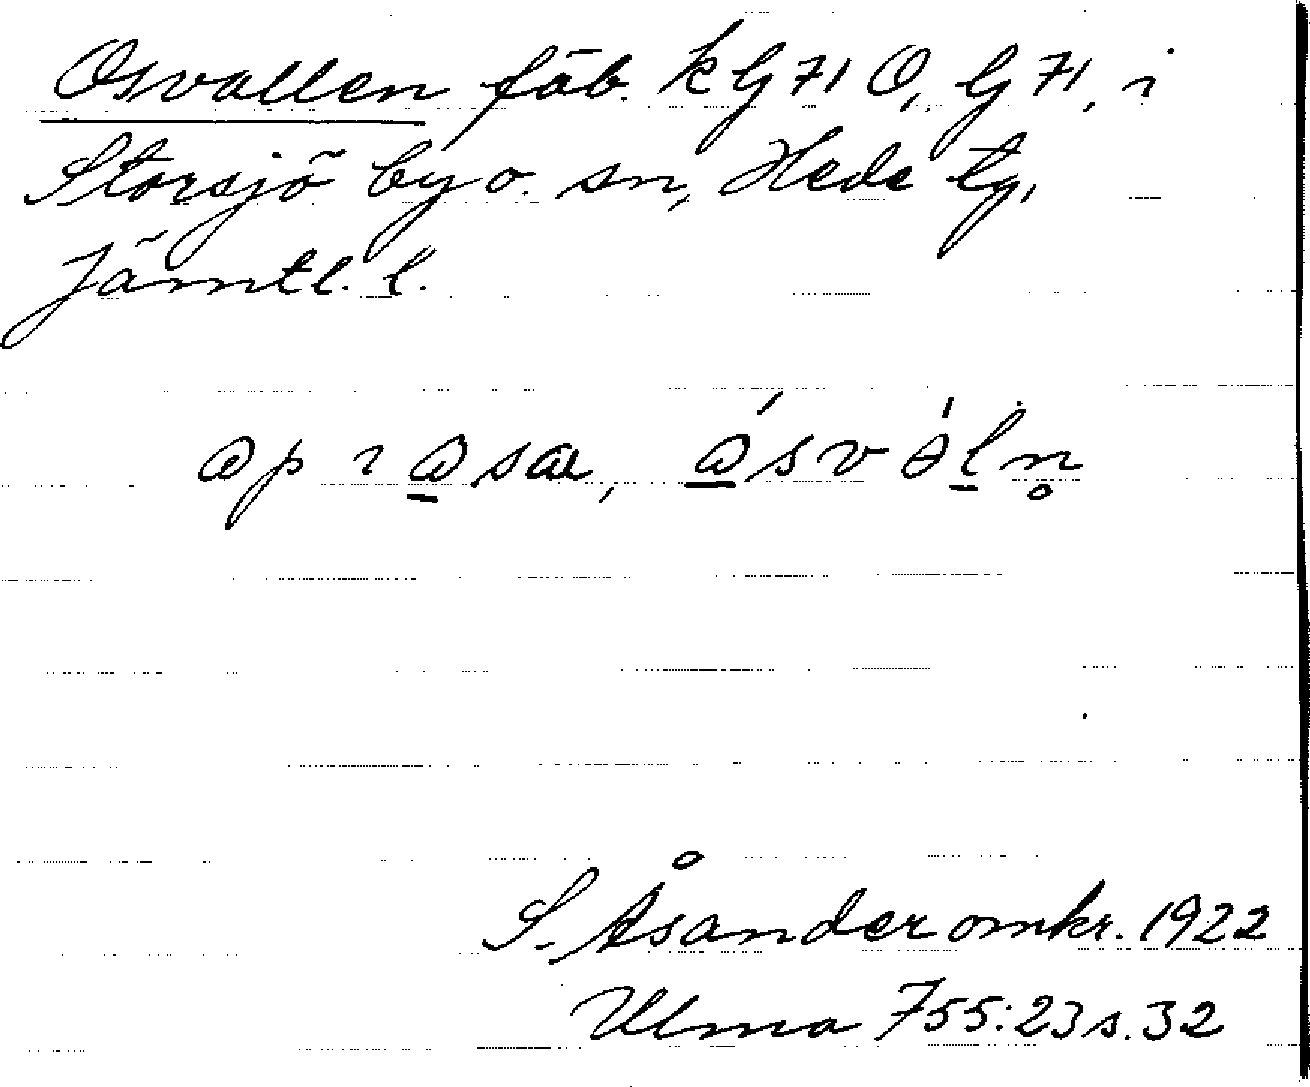 Osvallen fäb. k G 71 O, G 71, i
Storsjö by o. sn, Hede tg,
Jämtl. l.
S. Åsander omkr. 1922
Ulma 755:23 s. 32